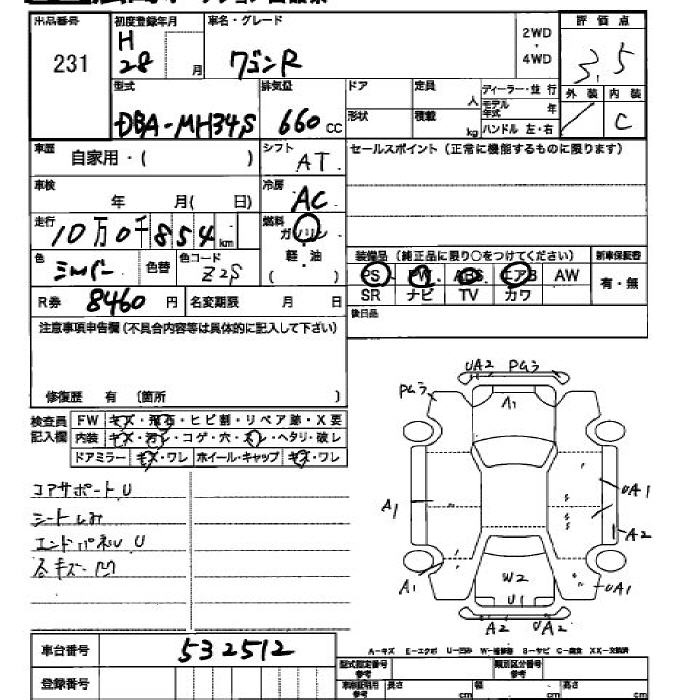 出品番号 初度登録年月 車名・グレード 2WD・4WD 評価点
231 H28 月 ワゴンR 3.5
型式 排気量 ドア 定員 人 ディーラー・並行 外装 内装
DBA-MH34S 660 cc 形状 積載 kg モデル年式 年 ハンドル 左・右 C
車歴 自家用・( ) シフト AT セールスポイント(正常に機能するものに限ります)
車検 年 月( 日) 冷房 AC
走行 10万0千854 km 燃料 ガソリン
色 シルバー 色替 色コード Z2S 軽・油 ( ) 装備品(純正品に限り○をつけてください) 新車保証書
PS PW ABS エアB AW 有・無
R券 8460 円 名変期限 月 日 SR ナビ TV カワ
注意事項申告欄(不具合内容等は具体的に記入して下さい) 後日品
修復歴 有 (箇所 )
検査員記入欄 FW キズ・飛石・ヒビ割・リペア跡・X要
内装 キズ・汚レ・コゲ・穴・スレ・ヘタリ・破レ
ドアミラー キズ・ワレ ホイール・キャップ キズ・ワレ
コアサポートU
シートしみ
エンドパネルU
各キズ・凹
UA2 PGう
PGう
A1
A1 UA1
A2
A1 W2 UA1
U1
A2 UA2
A-キズ E-エクボ U-凹み W-補修跡 S-サビ C-腐食 XX-交換済
車台番号 532512 型式指定番号 参考 類別区分番号 参考
登録番号 車庫証明用 参考 長さ cm 幅 cm 高さ cm